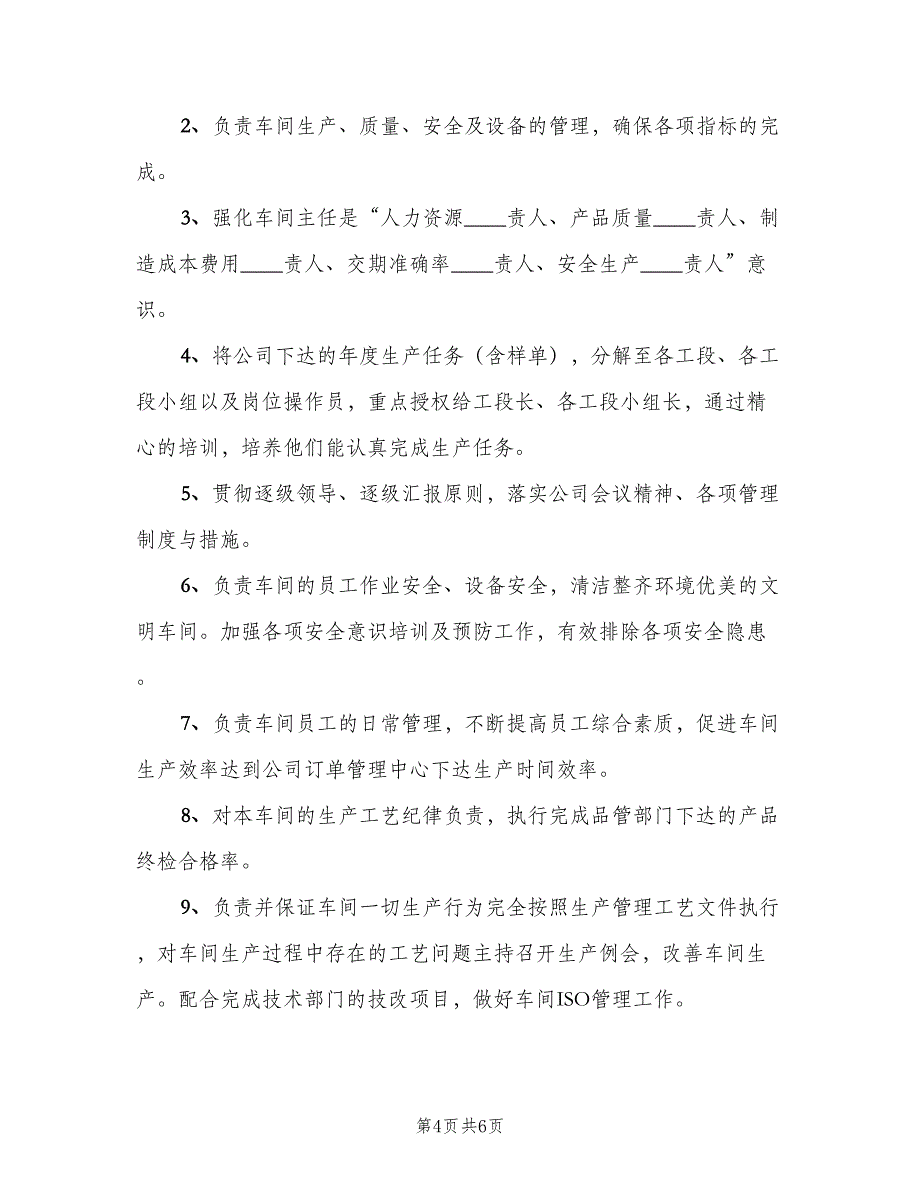 2、负责车间生产、质量、安全及设备的管理，确保各项指标的完
成。
3、强化车间主任是“人力资源____责人、产品质量____责人、制
造成本费用____责人、交期准确率____责人、安全生产____责人”意
识。
4、将公司下达的年度生产任务（含样单），分解至各工段、各工
段小组以及岗位操作员，重点授权给工段长、各工段小组长，通过精
心的培训，培养他们能认真完成生产任务。
5、贯彻逐级领导、逐级汇报原则，落实公司会议精神、各项管理
制度与措施。
6、负责车间的员工作业安全、设备安全，清洁整齐环境优美的文
明车间。加强各项安全意识培训及预防工作，有效排除各项安全隐患
。
7、负责车间员工的日常管理，不断提高员工综合素质，促进车间
生产效率达到公司订单管理中心下达生产时间效率。
8、对本车间的生产工艺纪律负责，执行完成品管部门下达的产品
终检合格率。
9、负责并保证车间一切生产行为完全按照生产管理工艺文件执行
，对车间生产过程中存在的工艺问题主持召开生产例会，改善车间生
产。配合完成技术部门的技改项目，做好车间ISO管理工作。
第4页 共6页